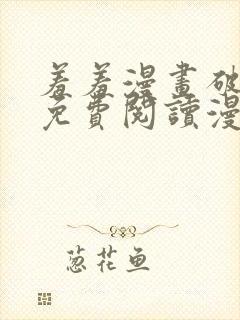 羞羞漫畫破
免費閱讀漫
葱花鱼